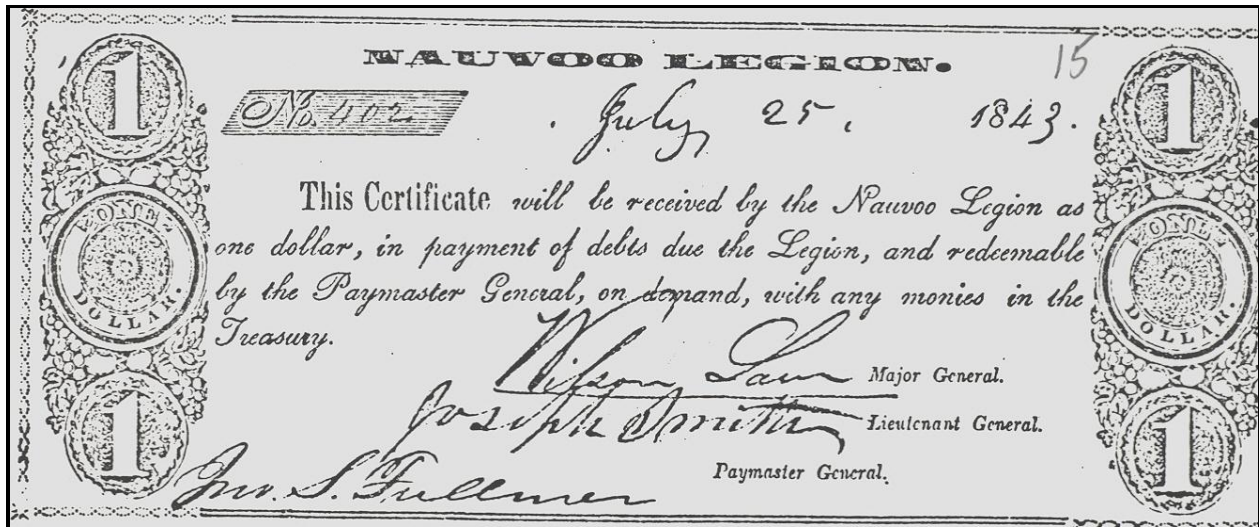 1
1
NAUVOO LEGION.
15
No. 402
July 25, 1843.
This Certificate will be received by the Nauvoo Legion as
one dollar, in payment of debts due the Legion, and redeemable
by the Paymaster General, on demand, with any monies in the
Treasury.
ONE
DOLLAR.
ONE
DOLLAR.
Wilson Law Major General.
Joseph Smith Lieutenant General.
Paymaster General.
Jno. S. Fullmer
1
1